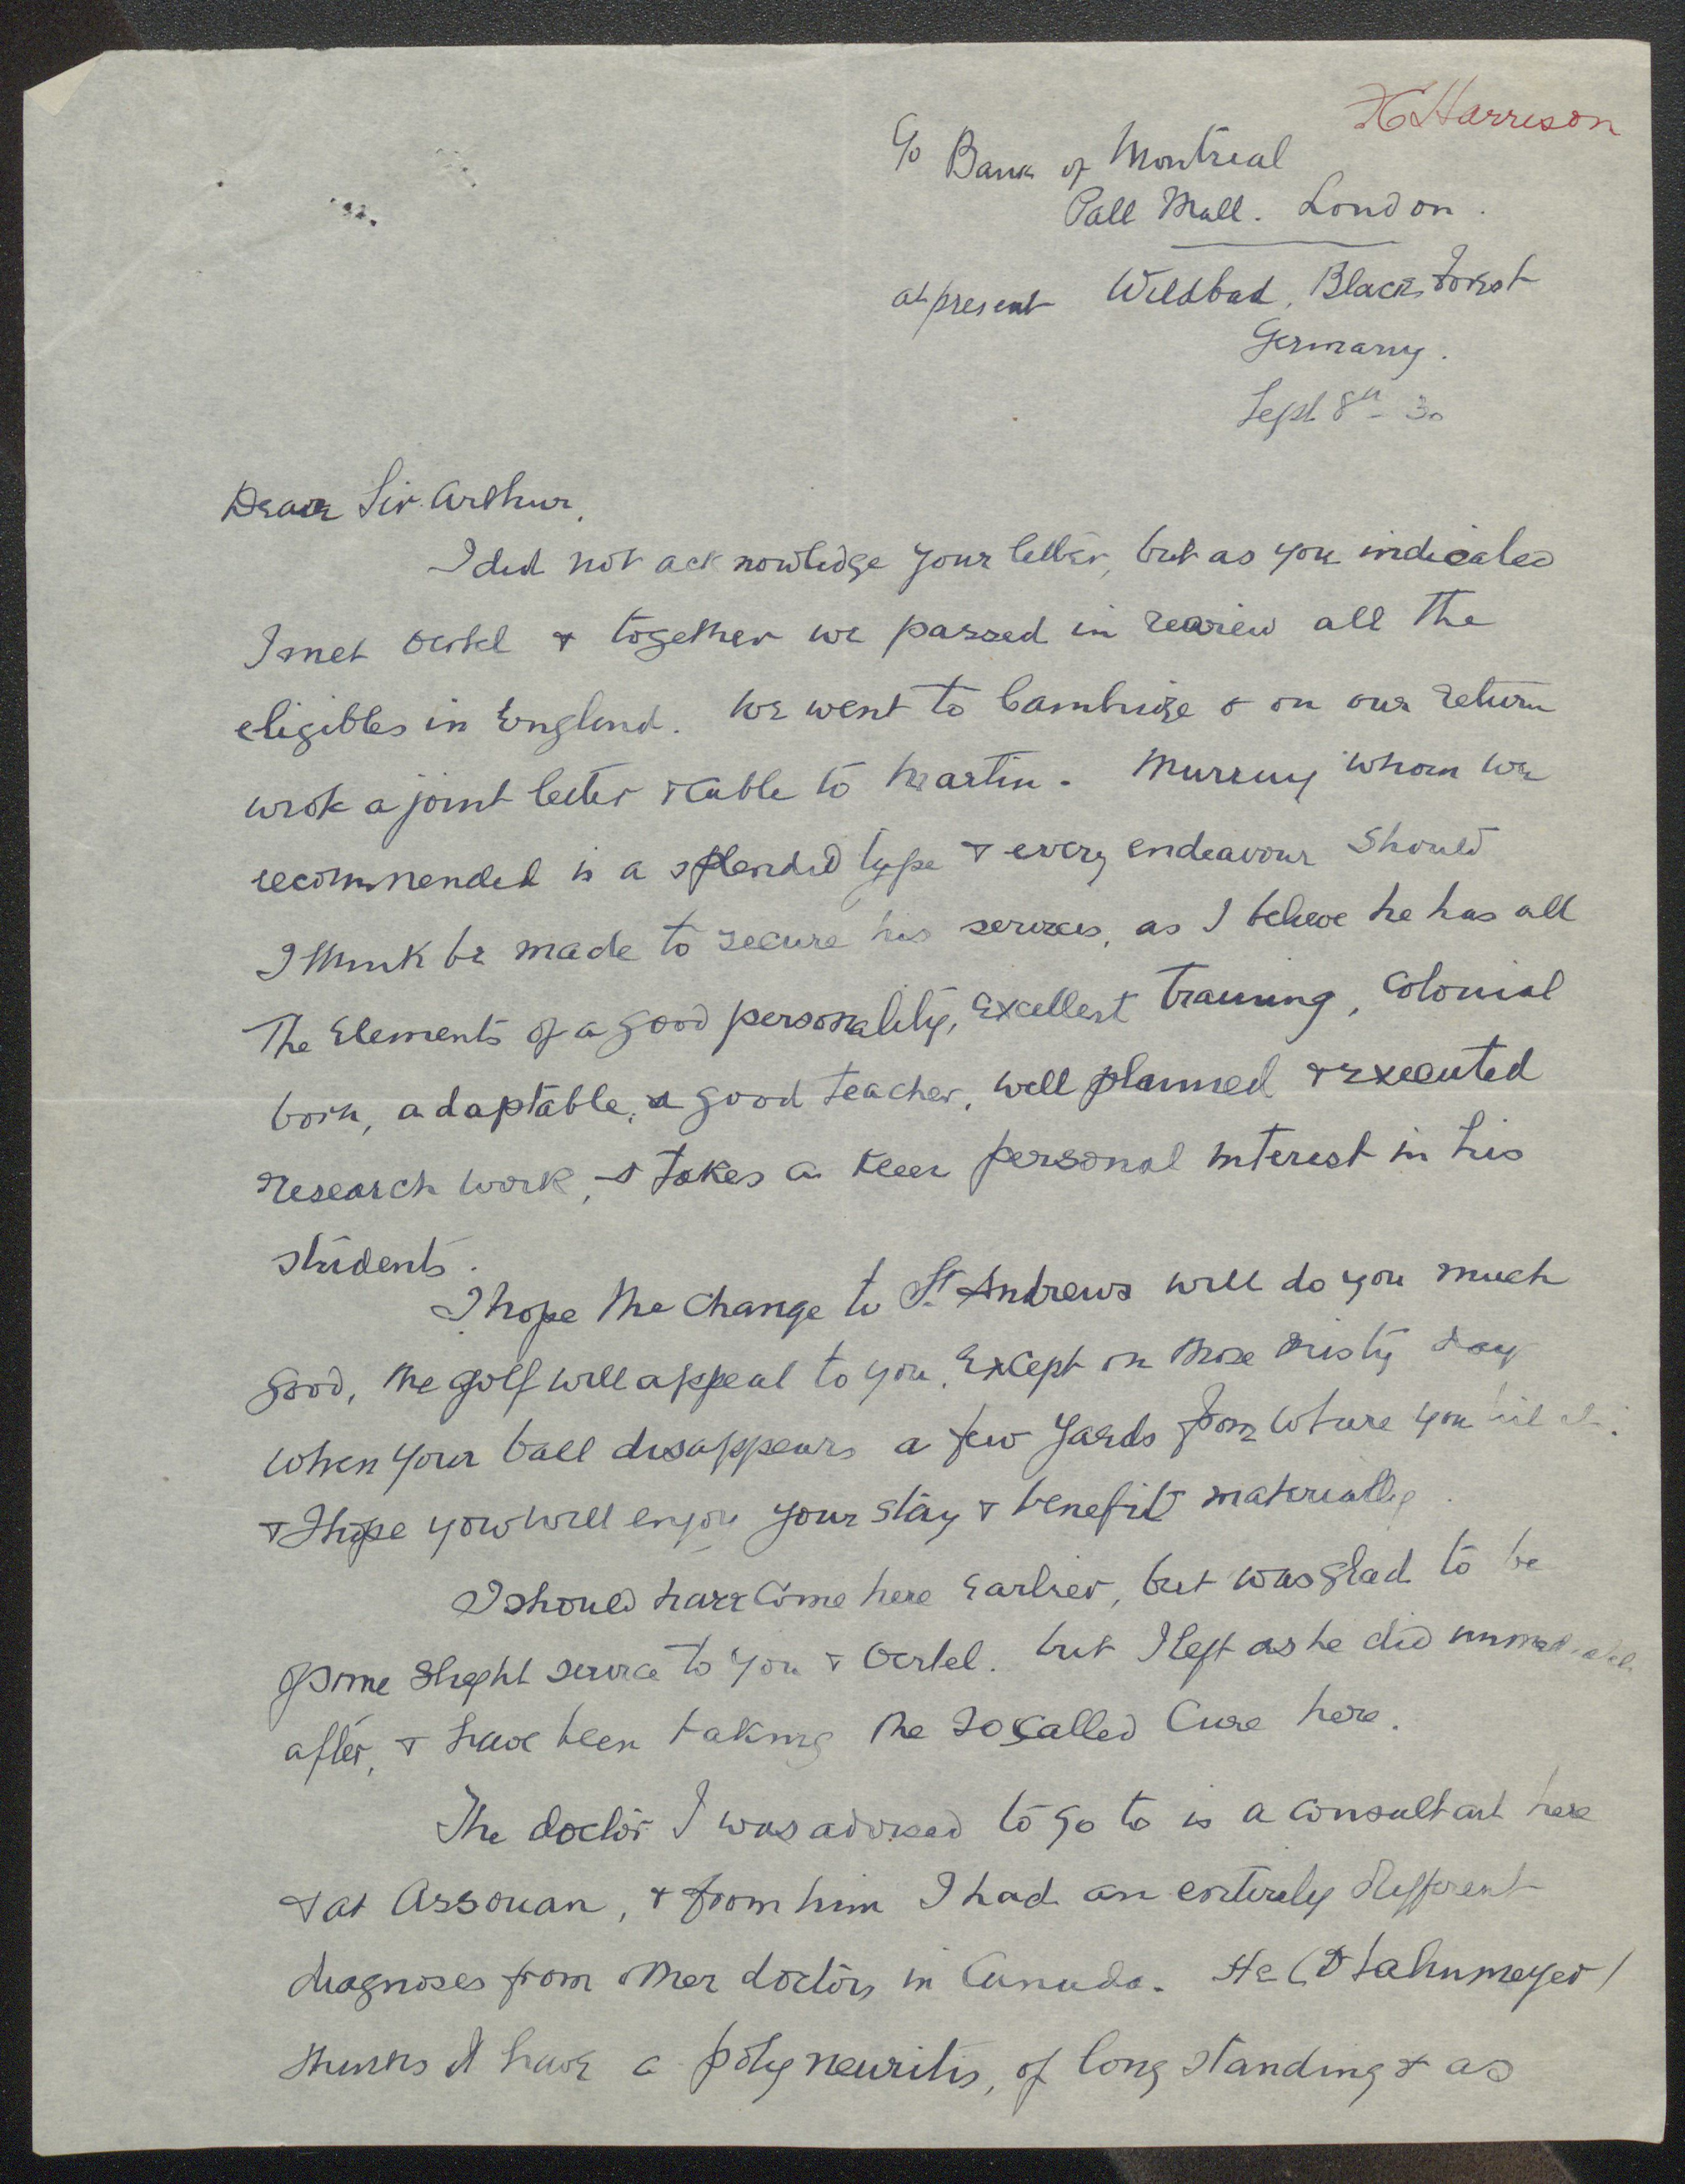 Harrison
c/o Bank of Montreal
Pall Mall. London.
at present Wildbad, Black Forest
Germany.
Sept 8th - 30
Dear Sir Arthur,
I did not acknowledge your letter, but as you indicated
I met Oertel & together we passed in review all the
eligibles in England. We went to Cambridge & on our return
wrote a joint letter & cable to Martin. Murray whom we
recommended is a splendid type & every endeavour should
I think be made to secure his services, as I believe he has all
The Elements of a good personality, Excellent training, Colonial
born, adaptable, a good teacher, well planned & executed
research work, & takes a keen personal interest in his
students.
I hope the change to St. Andrews will do you much
good, the golf will appeal to you, except on those misty day
when your ball disappears a few yards from where you hit it.
& I hope you will enjoy your stay & benefit materially.
I should have come here earlier, but was glad to be
of some slight service to you & Oertel. but I left as he did immediately
after, & have been taking the so called Cure here.
The doctor I was advised to go to is a consultant here
& at Assouan, & from him I had an entirely different
diagnoses from other doctors in Canada. He (Dr
thinks I have a poly neuritis, of long standing & as